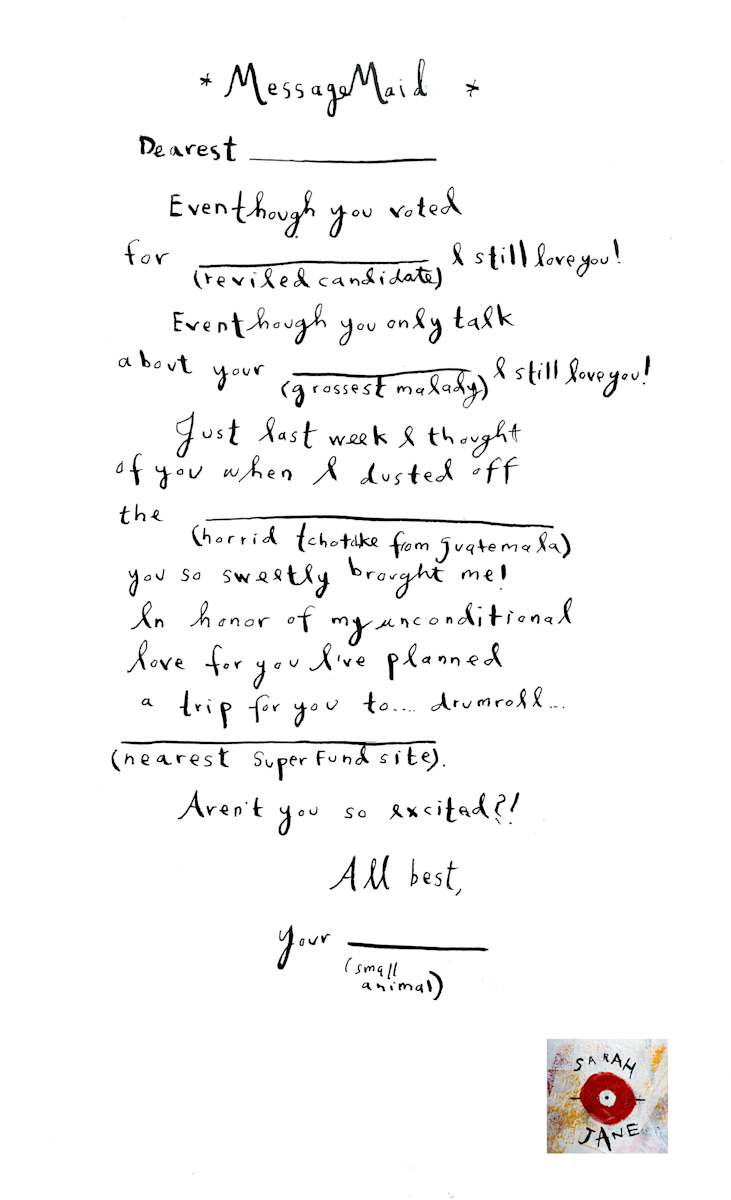 * MessageMaid *
Dearest ___________
Eventhough you voted
for ___________ I still love you!
(reviled candidate)
Eventhough you only talk
about your ___________ I still love you!
(grossest malady)
Just last week I thought
of you when I dusted off
the ___________
(horrid tchotcke from guatemala)
you so sweetly brought me!
In honor of my unconditional
love for you I've planned
a trip for you to.... drumroll...
___________
(nearest Superfund site).
Aren't you so excited?!
All best,
Your ___________
(small
animal)
SARAH
JANE